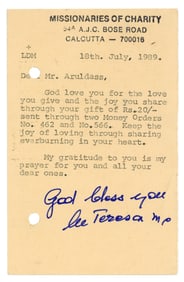 MISSIONARIES OF CHARITY
54A A.J.C. BOSE ROAD
CALCUTTA - 700016
LDM 18th. July, 1989.
Dear Mr. Aruldass,
God love you for the love
you give and the joy you share
through your gift of Rs.20/-
sent through two Money Orders
No. 462 and No.566. Keep the
joy of loving through sharing
everburning in your heart.
My gratitude to you is my
prayer for you and all your
dear ones.
God bless you
lle Teresa mc